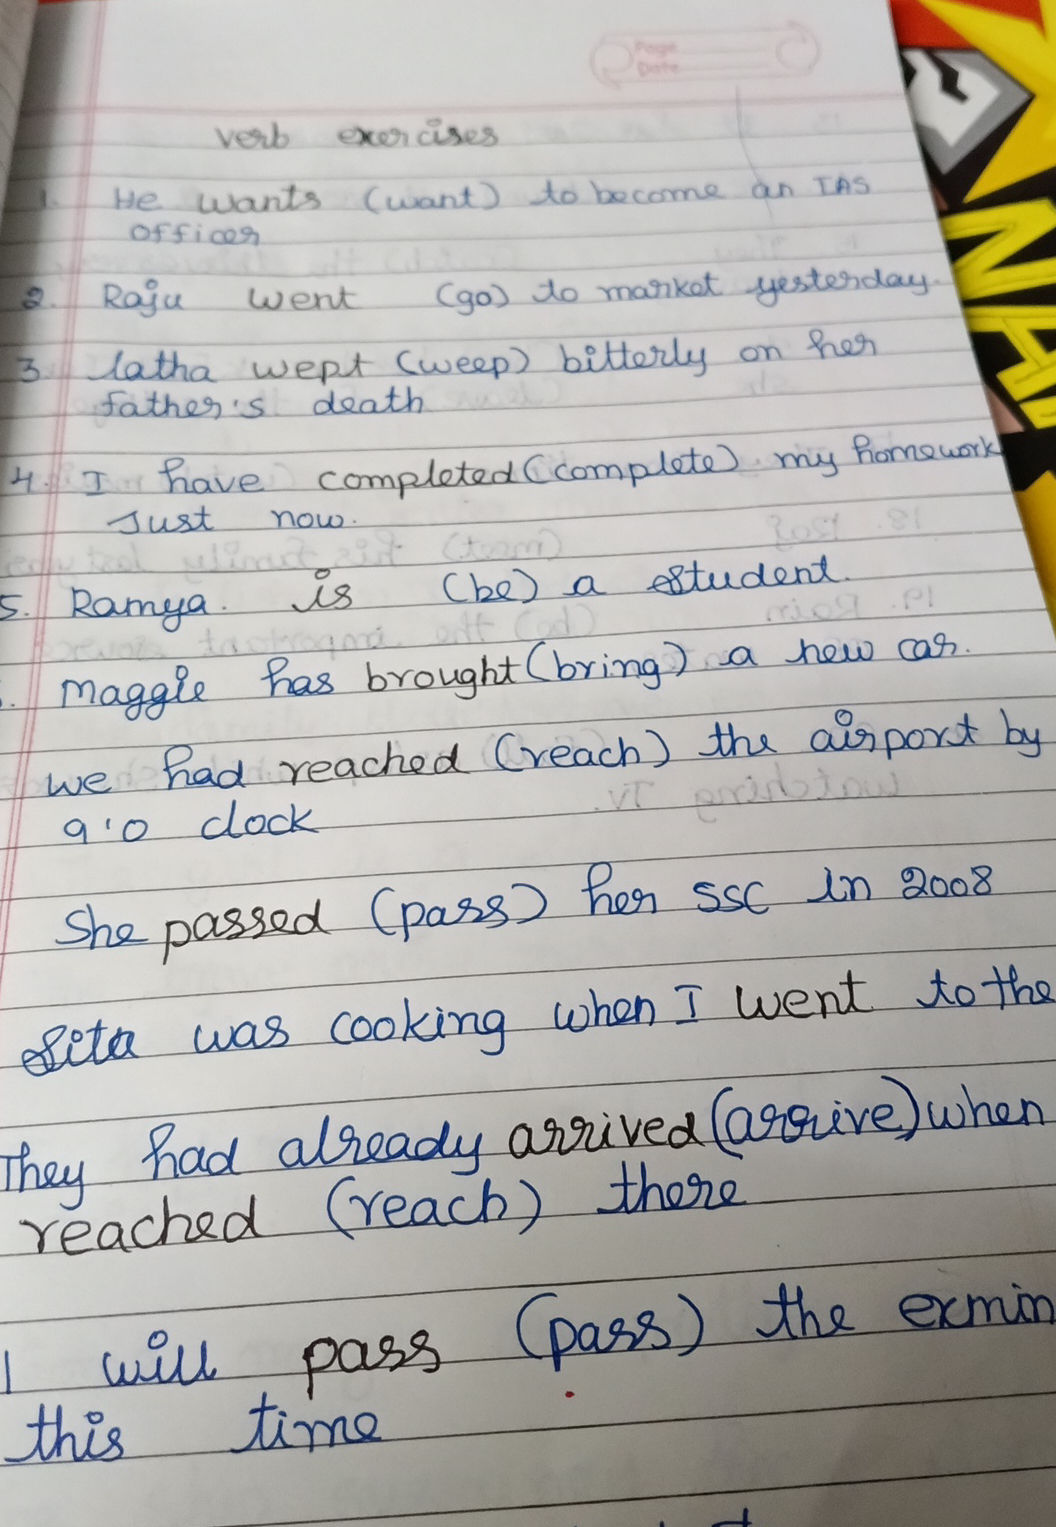 Page
Date
verb exercises
1. He wants (want) to become an IAS
officer
2. Raju went (go) to market yesterday.
3. latha wept (weep) bitterly on her
father's death
4. I have completed (complete) my homework
Just now.
5. Ramya. is (be) a student.
. Maggie has brought (bring) a new car.
we had reached (reach) the airport by
9'0 clock
She passed (pass) her SSC in 2008
Sita was cooking when I went to the
They had already arrived (arrive) when
reached (reach) there
I will pass (pass) the exmin
this time